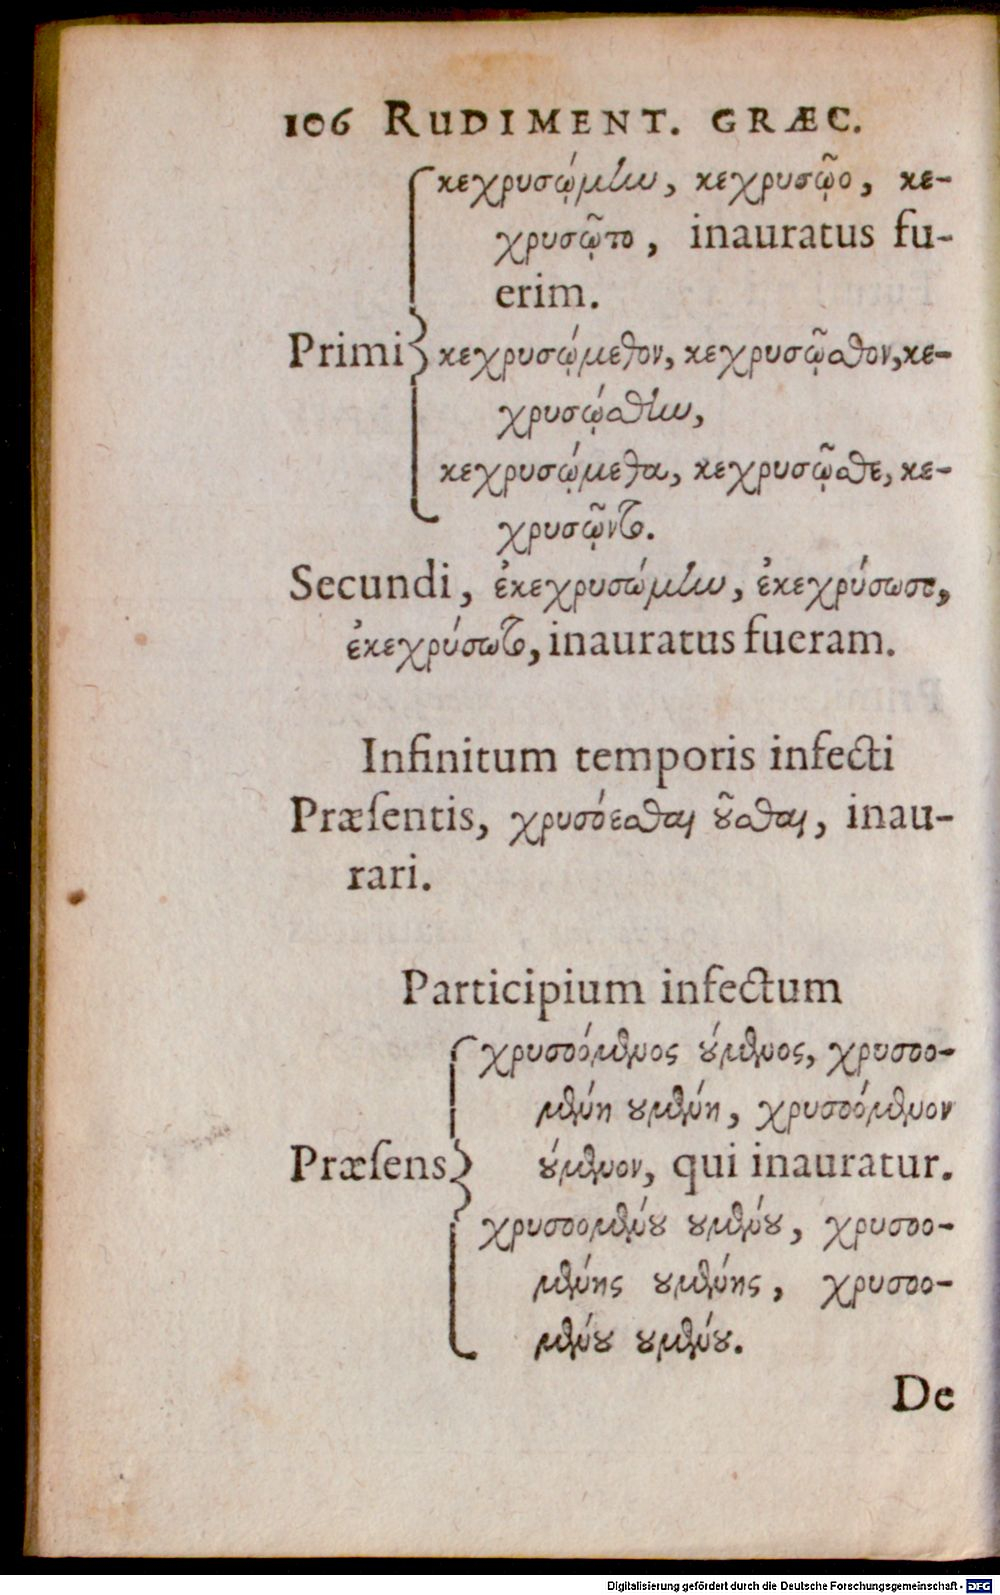 106 RUDIMENT. GRÆC.
κεχρυσῴμην, κεχρυσῷο, κε-
χρυσῷτο, inauratus fu-
erim.
Primi κεχρυσῴμεθον, κεχρυσῷσθον, κε-
χρυσῴσθην,
κεχρυσῴμεθα, κεχρυσῷσθε, κε-
χρυσῷντο.
Secundi, ἐκεχρυσώμην, ἐκεχρύσωσο,
ἐκεχρύσωτο, inauratus fueram.
Infinitum temporis infecti
Præſentis, χρυσόεσθαι οῦσθαι, inau-
rari.
Participium infectum
χρυσοόμενος ούμενος, χρυσοο-
μένη ουμένη, χρυσοόμενον
Præſens ούμενον, qui inauratur.
χρυσοομένου ουμένου, χρυσοο-
μένης ουμένης, χρυσοο-
μένου ουμένου.
De
Digitalisierung gefördert durch die Deutsche Forschungsgemeinschaft - DFG